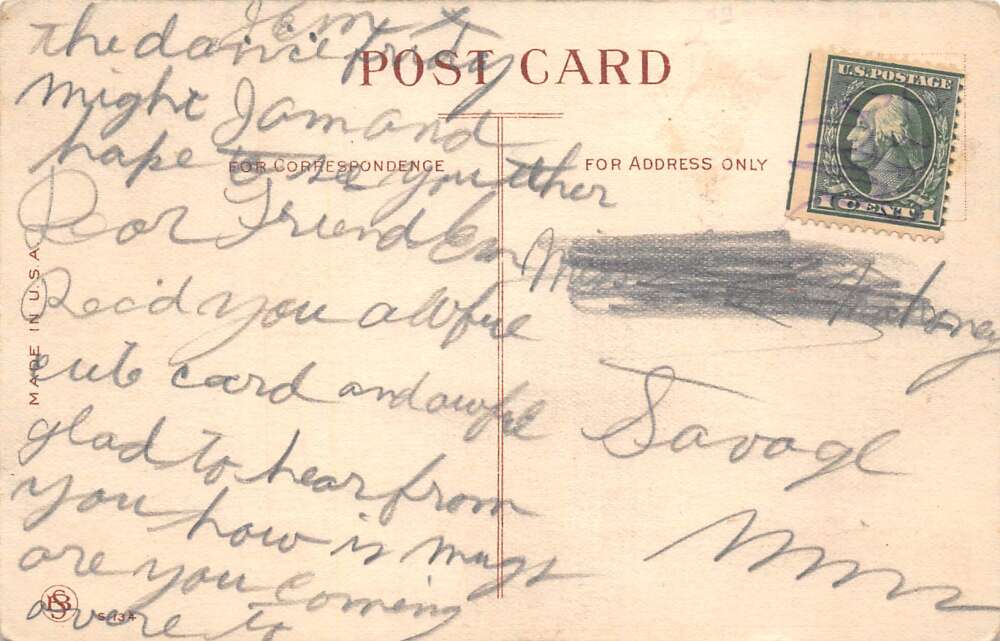 J.E.M. X
the dance friday
might Jam and
hope to see you ther
POST CARD
U.S. POSTAGE
1 CENT 1
FOR CORRESPONDENCE
FOR ADDRESS ONLY
MADE IN U.S.A.
Dear Friend Em
Rec'd you awful
cute card and awful
glad to hear from
you how is mugs
are you coming
overe to
Miss
Savage
Minn
BS
S 134